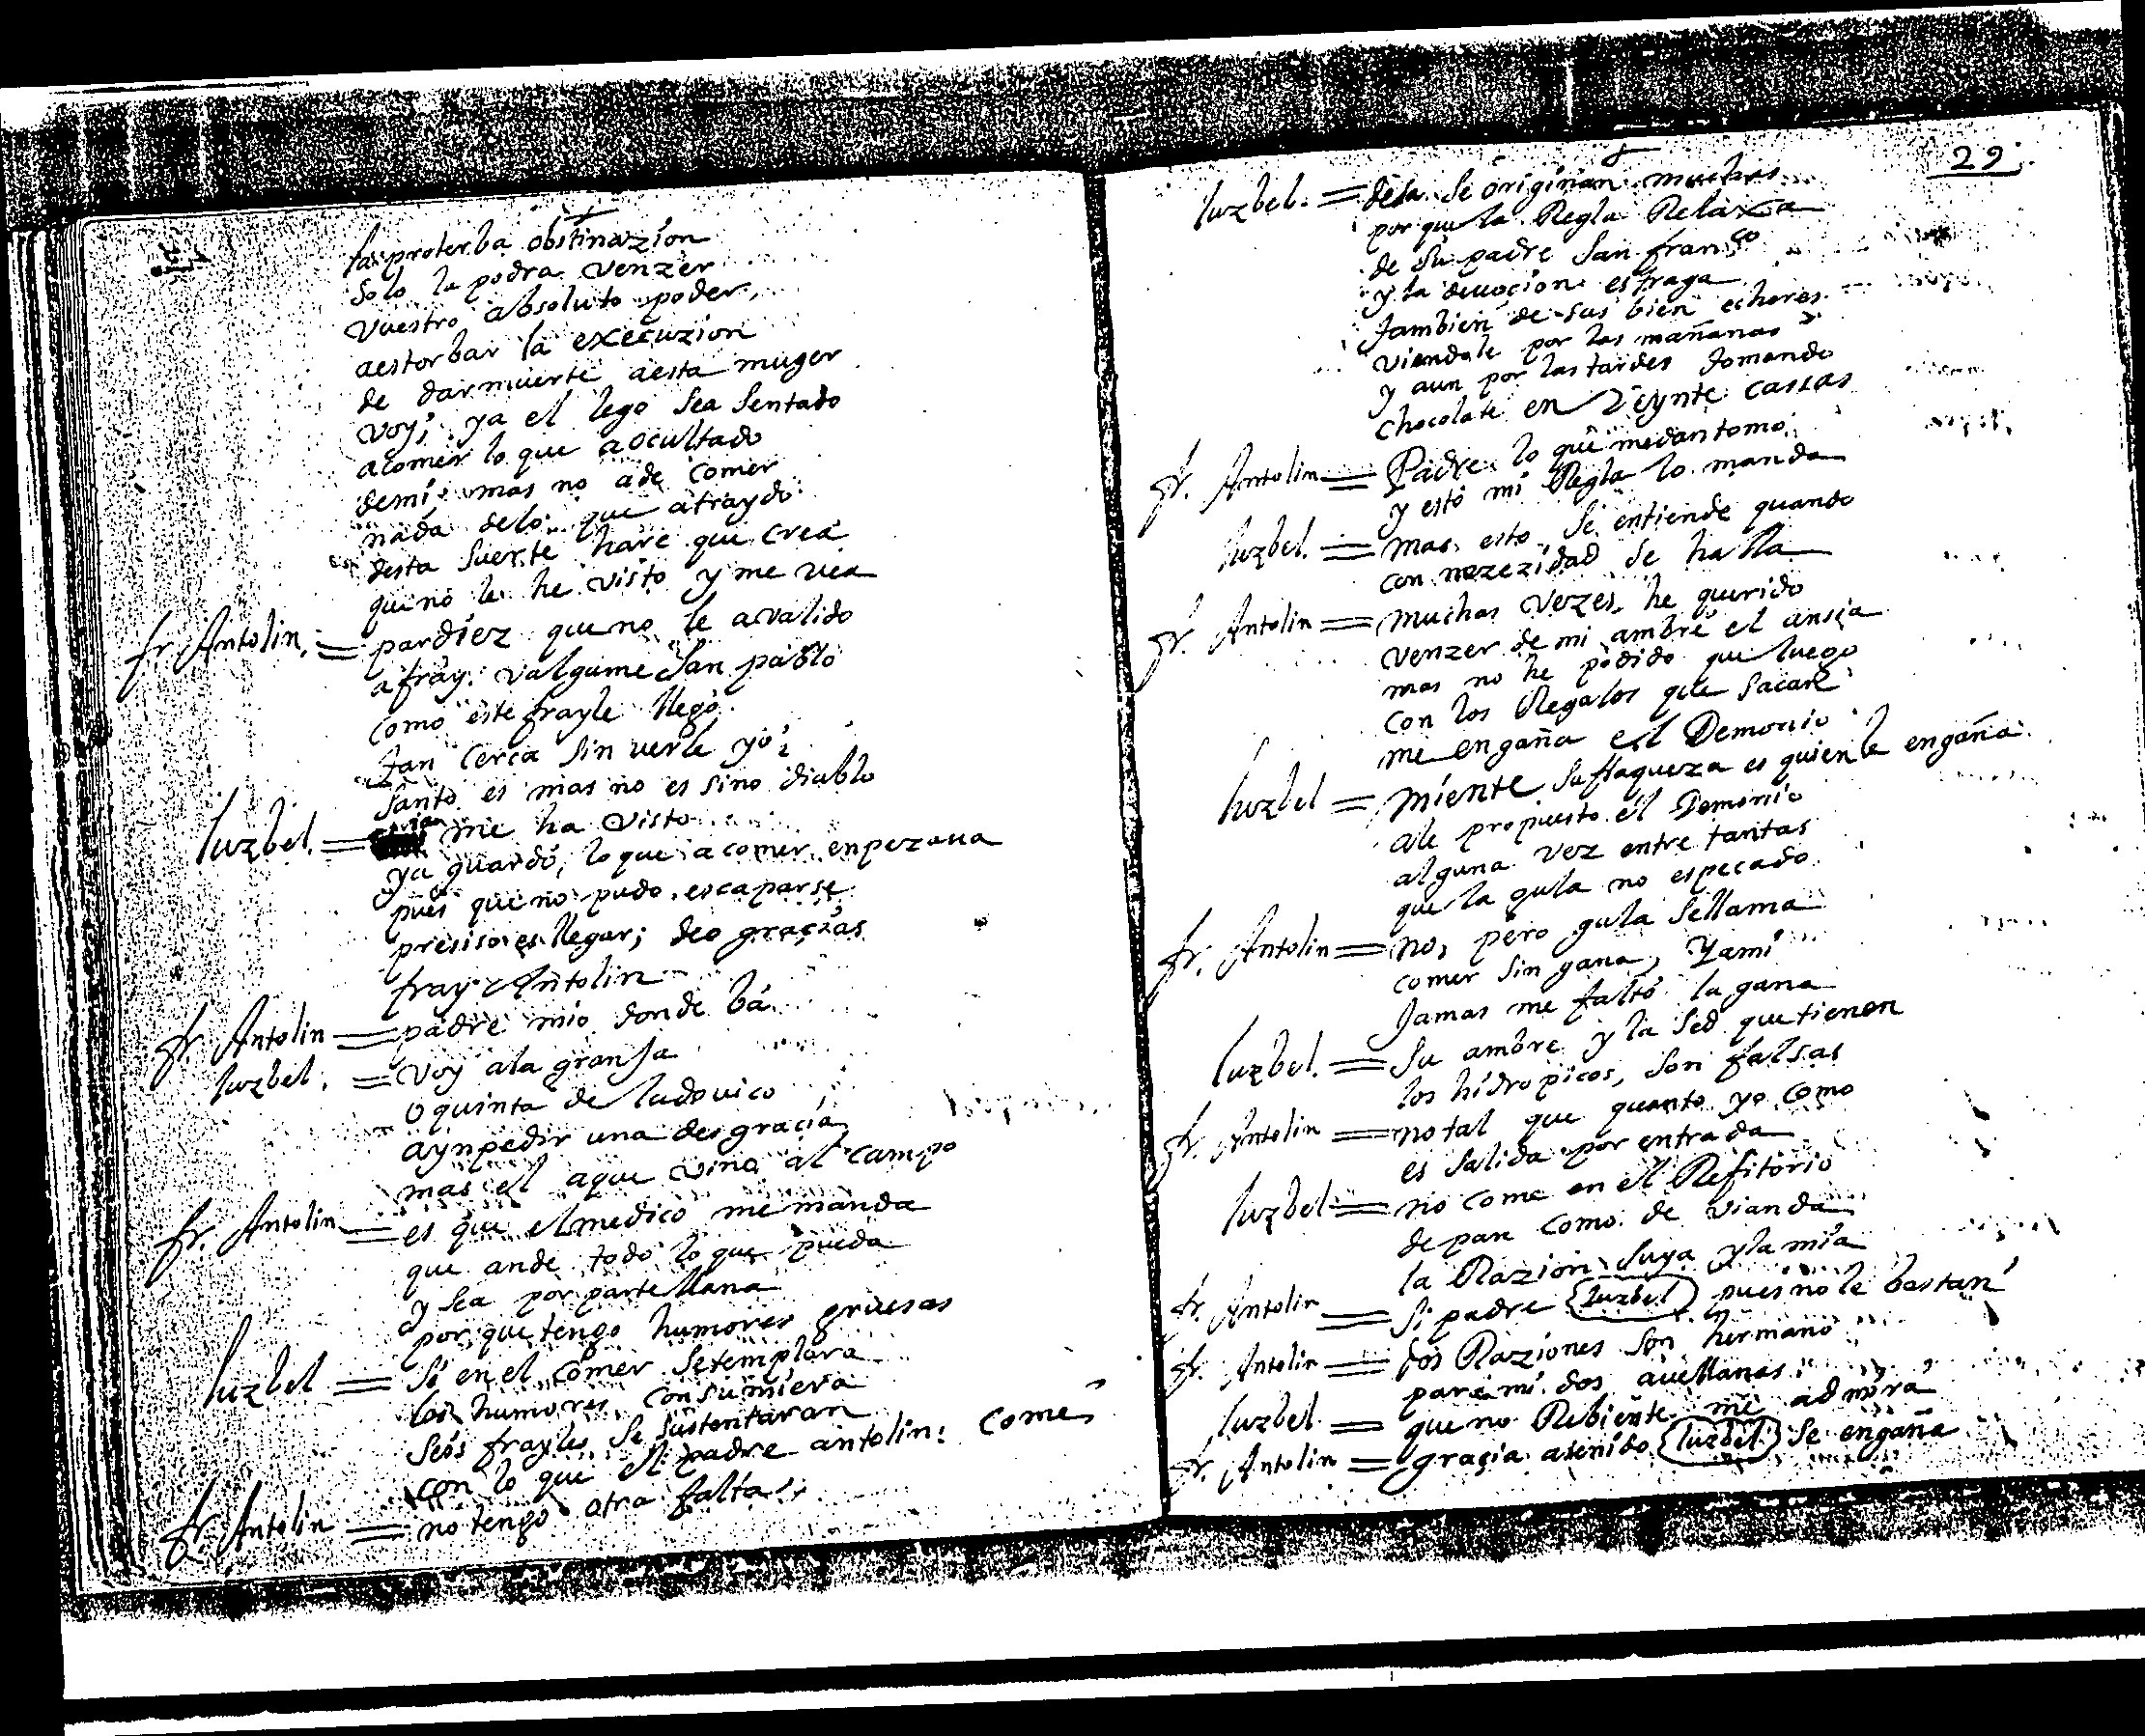 la proterba obstinazion
solo la podra venzer
vuestro absoluto poder,
aestorbar la execuzion
de dar muerte aesta muger
voy; ya el lego sea sentado
acomer lo que a ocultado
demi; mas no ade comer
nada delo que atraydo
desta suerte hare que crea
que no le he visto y me vea
fr Antolin = pardiez que no le avalido
afray. valgame San pablo
como este frayle llegó
tan cerca sin verle yó?
santo es mas no es sino diablo
luzbel. = me ha visto
ya guardó, lo que acomer enpezaua
pues que no pudo escaparse
presiso es llegar; deo graçias
fray Antolin
fr. Antolin = padre mio donde bá
luzbel. = voy ala granja
o quinta de ludouico
aynpedir una desgraçia
mas el aque vino al campo
fr. Antolin = es que el medico memanda
que ande todo lo que pueda
y sea por parte llana
por que tengo humores gruesas
luzbel = Si en el comer setemplara
los humores consumiera
seis frayles se sustentaran
con lo que el padre antolin: come
fr. Antolin = no tengo otra falta
29
luzbel. = desa se originan muchas
por que la Regla Relaxa
de su padre San fran.co
y la deuoçion estraga
tambien de sus bien echores
viendole por las mañanas
y aun por las tardes tomando
chocolate en veynte cassas
fr. Antolin = Padre lo que medan tomo
y esto mi Regla lo manda
luzbel. = mas esto se entiende quando
con nezezidad se halla
fr. Antolin = muchas vezes he querido
venzer de mi ambre el ansia
mas no he podido que luego
con los Regalos que sacare
me engaña el Demonio
luzbel = miente su flaqueza es quien le engaña
ale propuesto el Demonio
alguna vez entre tantas
que la gula no espcado
fr. Antolin = no, pero gula sellama
comer sin gana, Yami
Jamas me faltó la gana
luzbel. = Su ambre y la sed que tienen
los hidropicos, son falsas
fr. Antolin = no tal que quanto yo como
es salida por entrada
luzbel = no come en el Refitorio
de pan como de vianda
la Razion suya y la mia
fr. Antolin = Si padre (luzbel) pues no le bastan
fr. Antolin = dos Raziones son hermano
para mi dos auellanas
luzbel = que no Rebiente me admira
fr. Antolin = graçia atenido (luzbel) se engaña